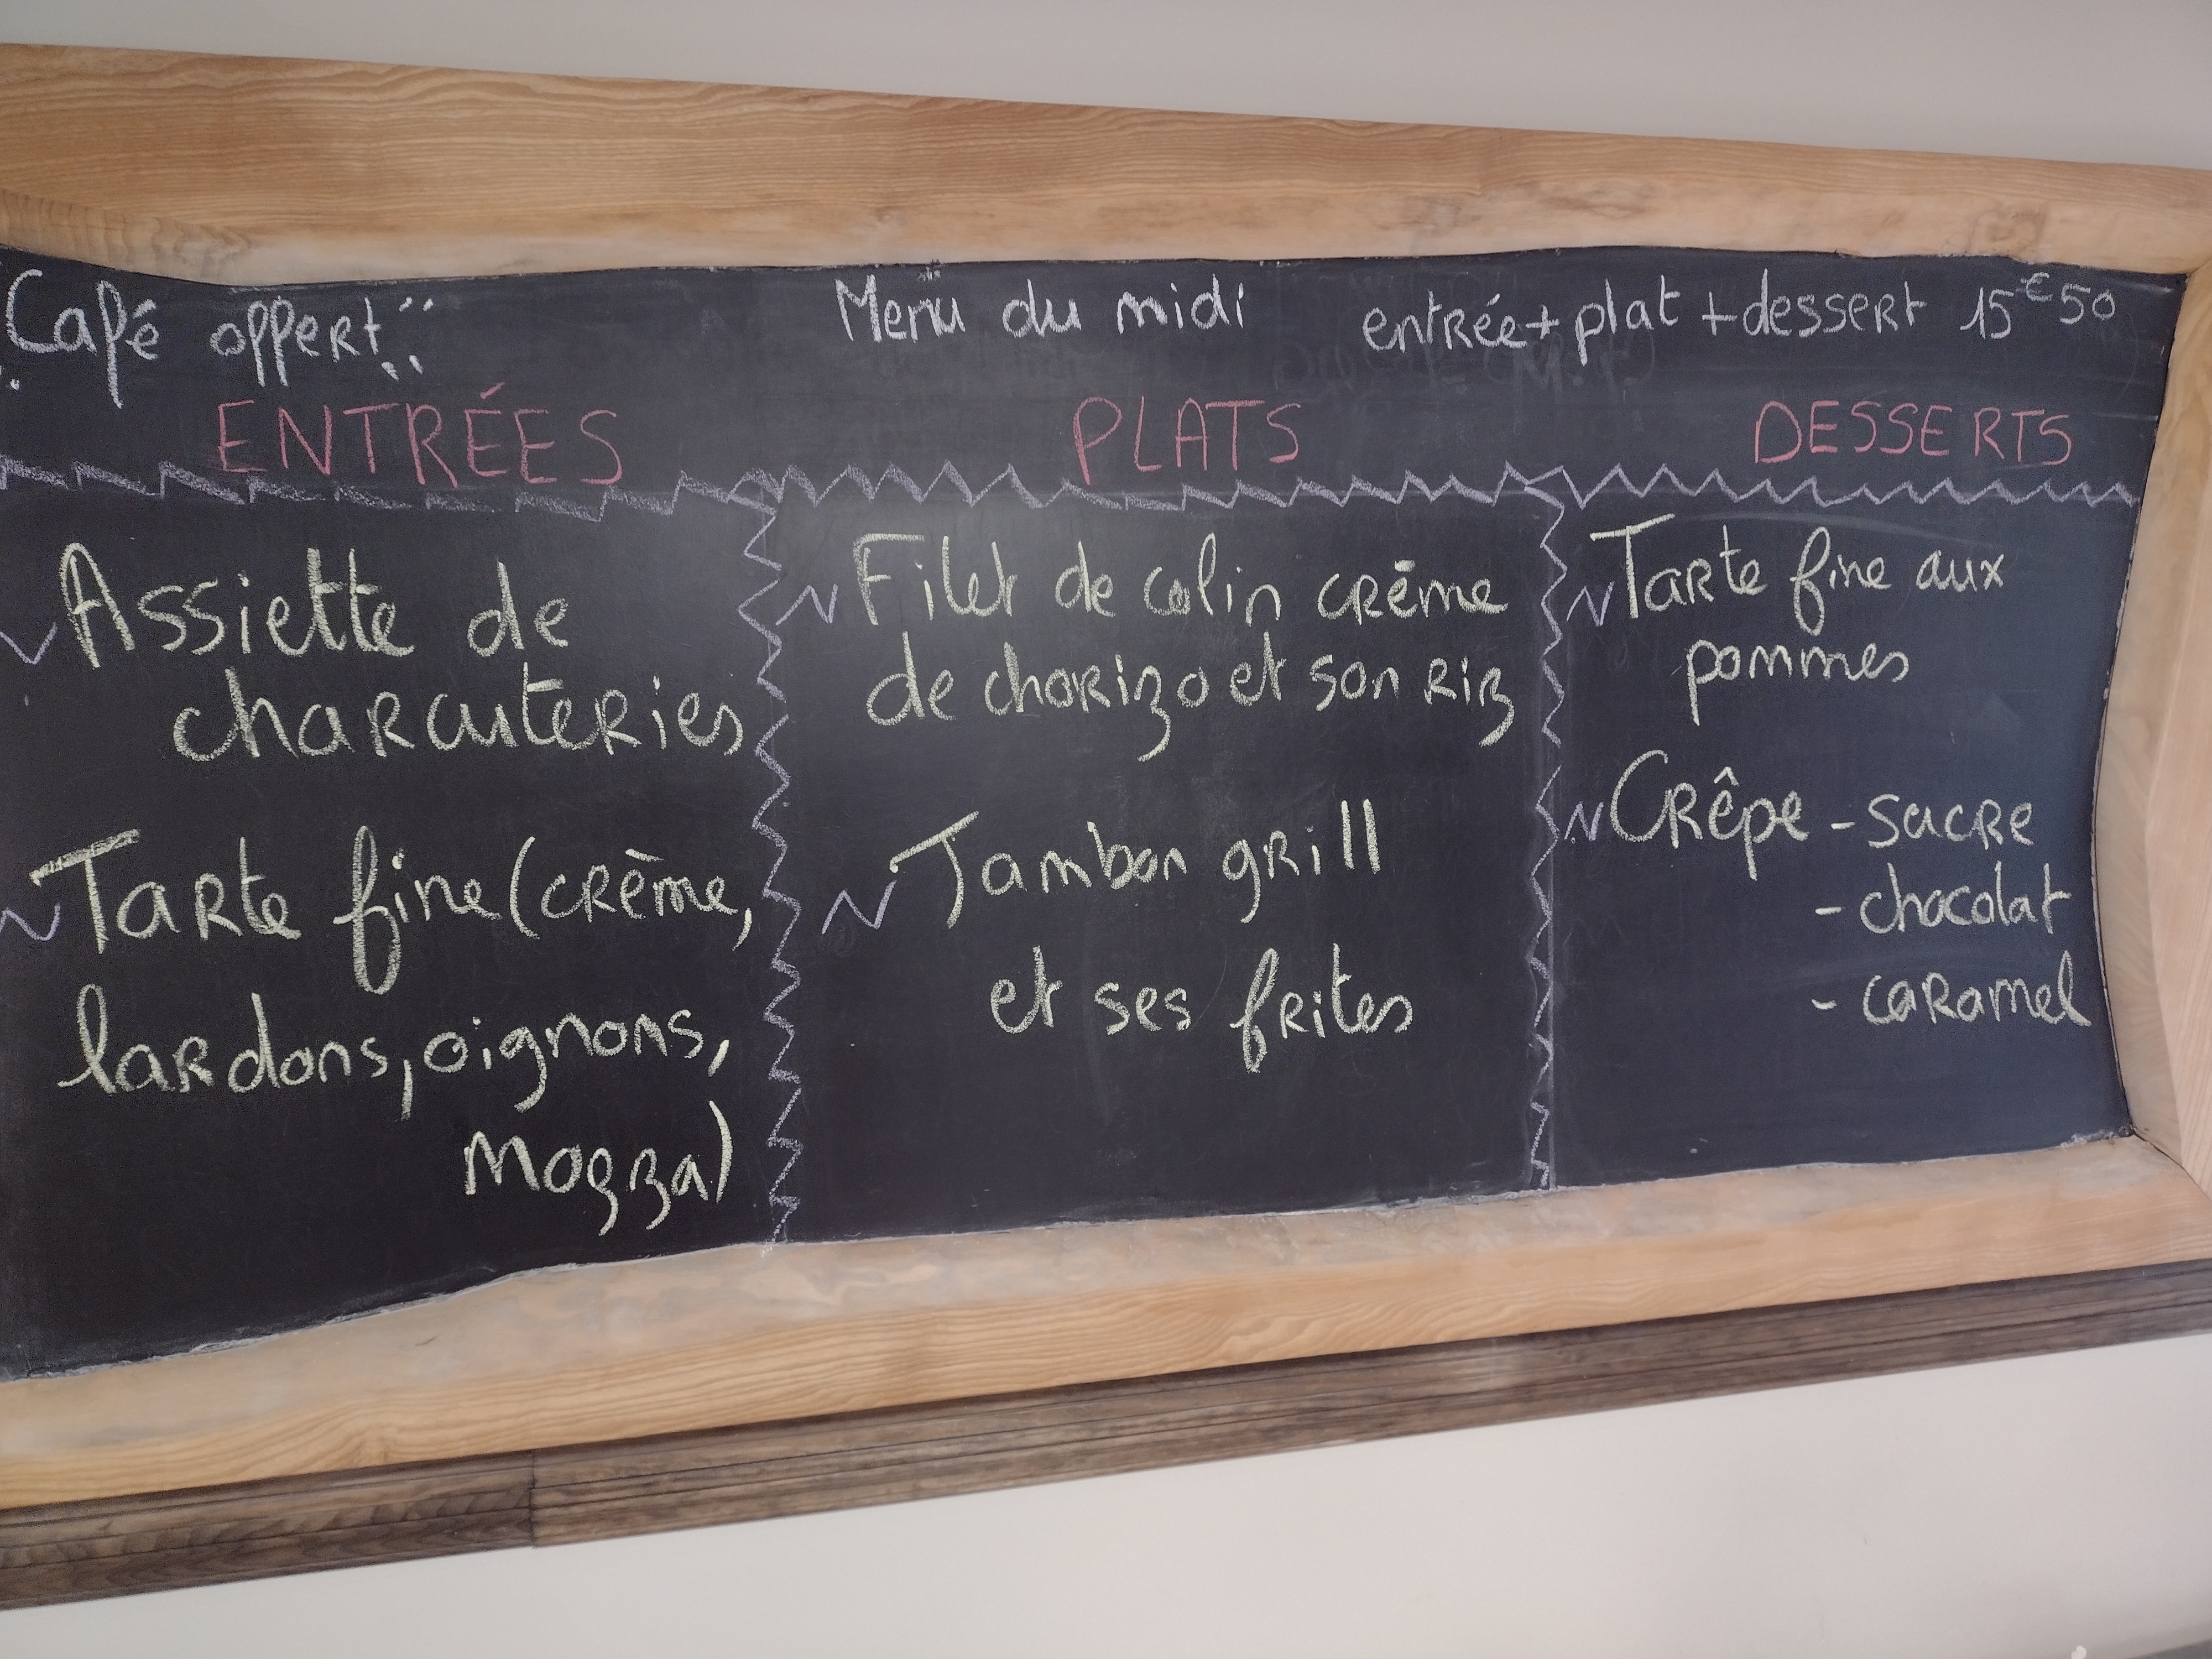 Café offert
Menu du midi
entrée + plat + dessert 15€50
ENTRÉES
Assiette de
charcuteries
Tarte fine (crème,
lardons, oignons,
mozza)
PLATS
Filet de colin crème
de chorizo et son riz
Jambon grill
et ses frites
DESSERTS
Tarte fine aux
pommes
Crêpe - sucre
- chocolat
- caramel